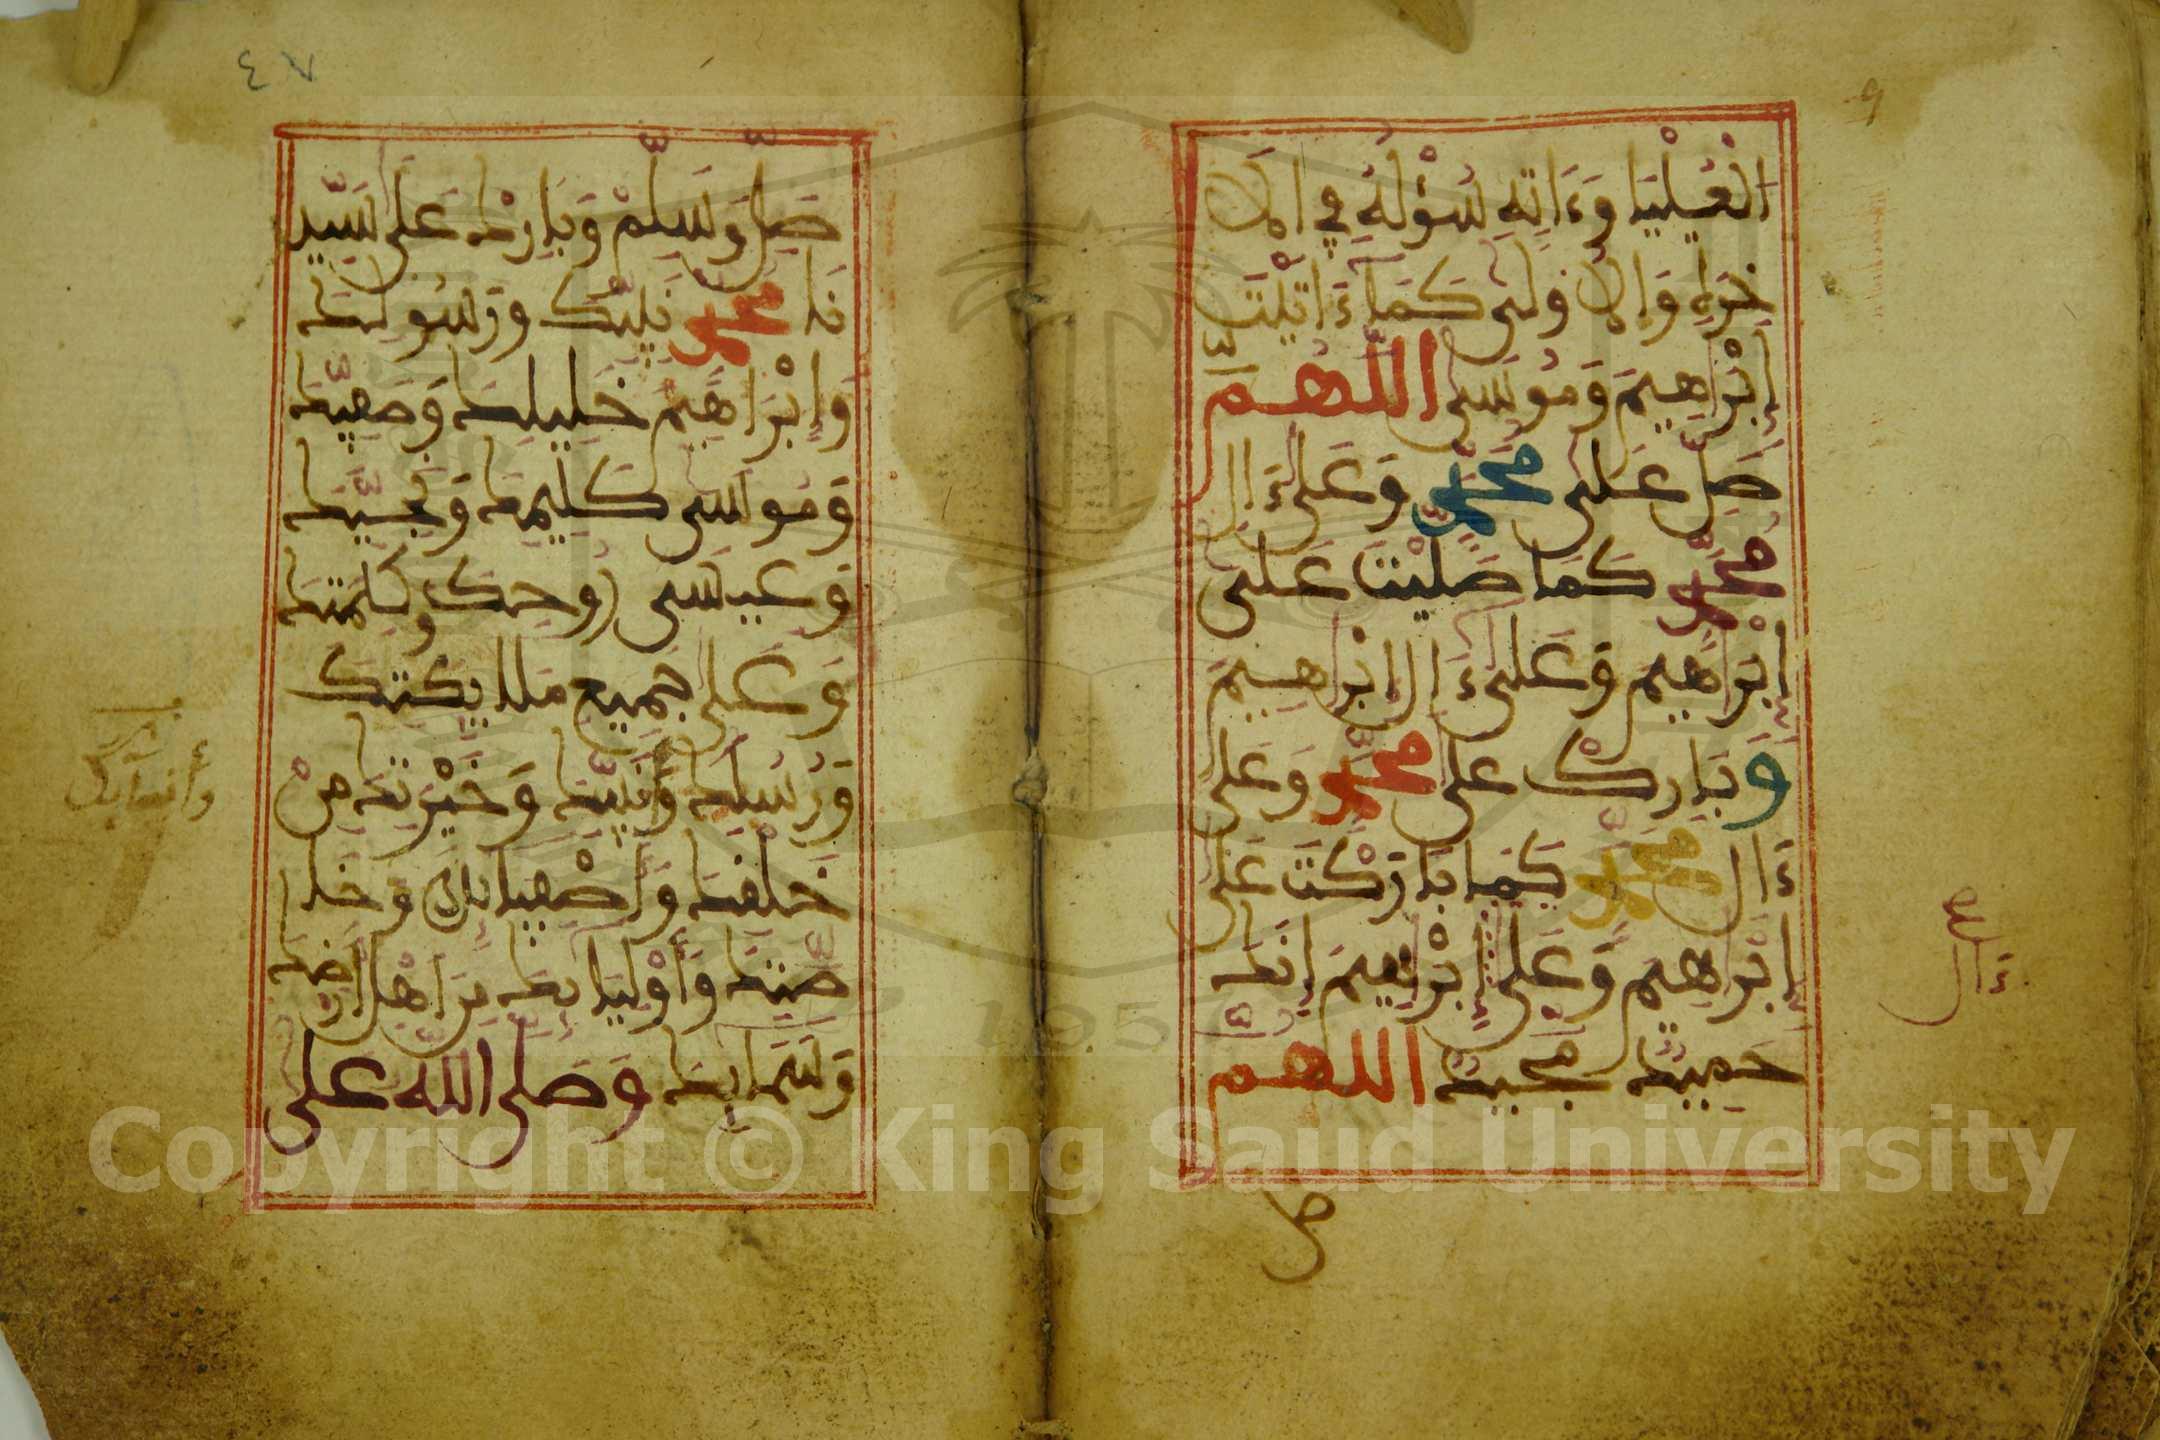 ٩
الْعُلْيَا وَءَاتِهِ سُؤْلَهُ فِي الَا
خِرَةِ وَالُاولَى كَمَا ءَاتَيْتَ
إِبْرَاهِيمَ وَمُوسَى اللَّهُمَّ
صَلِّ عَلَى مُحَمَّدٍ وَعَلَى ءَالِ
مُحَمَّدٍ كَمَا صَلَّيْتَ عَلَى
إِبْرَاهِيمَ وَعَلَى ءَالِ إِبْرَاهِيمَ
وَبَارِكْ عَلَى مُحَمَّدٍ وَعَلَى
ءَالِ مُحَمَّدٍ كَمَا بَارَكْتَ عَلَى
إِبْرَاهِيمَ وَعَلَى إِبْرَاهِيمَ إِنَّكَ
حَمِيدٌ مَجِيدٌ اللَّهُمَّ
ءال
صل
٤٨
صَلِّ وَسَلِّمْ وَبَارِكْ عَلَى سَيِّدِ
نَا مُحَمَّدٍ نَبِيِّكَ وَرَسُولِكَ
وَإِبْرَاهِيمَ خَلِيلِكَ وَصَفِيِّكَ
وَمُوسَى كَلِيمِكَ وَنَجِيِّكَ
وَعِيسَى رُوحِكَ وَكَلِمَتِكَ
وَعَلَى جَمِيعِ مَلَايِكَتِكَ
وَرُسُلِكَ وَأَنْبِيَّكَ وَخَيْرَتِكَ مِنْ
خَلْقِكَ وَأَصْفِيَائِكَ وَخَا
صَّتِكَ وَأَوْلِيَائِكَ مِنَ اَهْلِ أَرْضِكَ
وَسَمَائِكَ وَصَلَّى اللَّهُ عَلَى
وأنبيائك
Copyright © King Saud University
1957